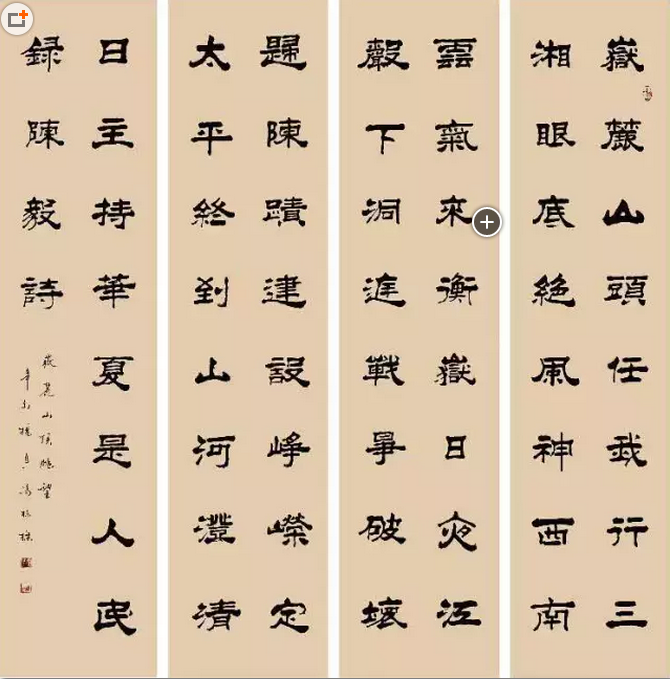 嶽麓山頭任我行三
湘眼底絕風神西南
雲氣來衡嶽日夜江
聲下洞庭戰爭破壞
歸陳蹟建設崢嶸定
太平終到山河澄清
日主持華夏是人民
録陳毅詩
嶽麓山頂眺望